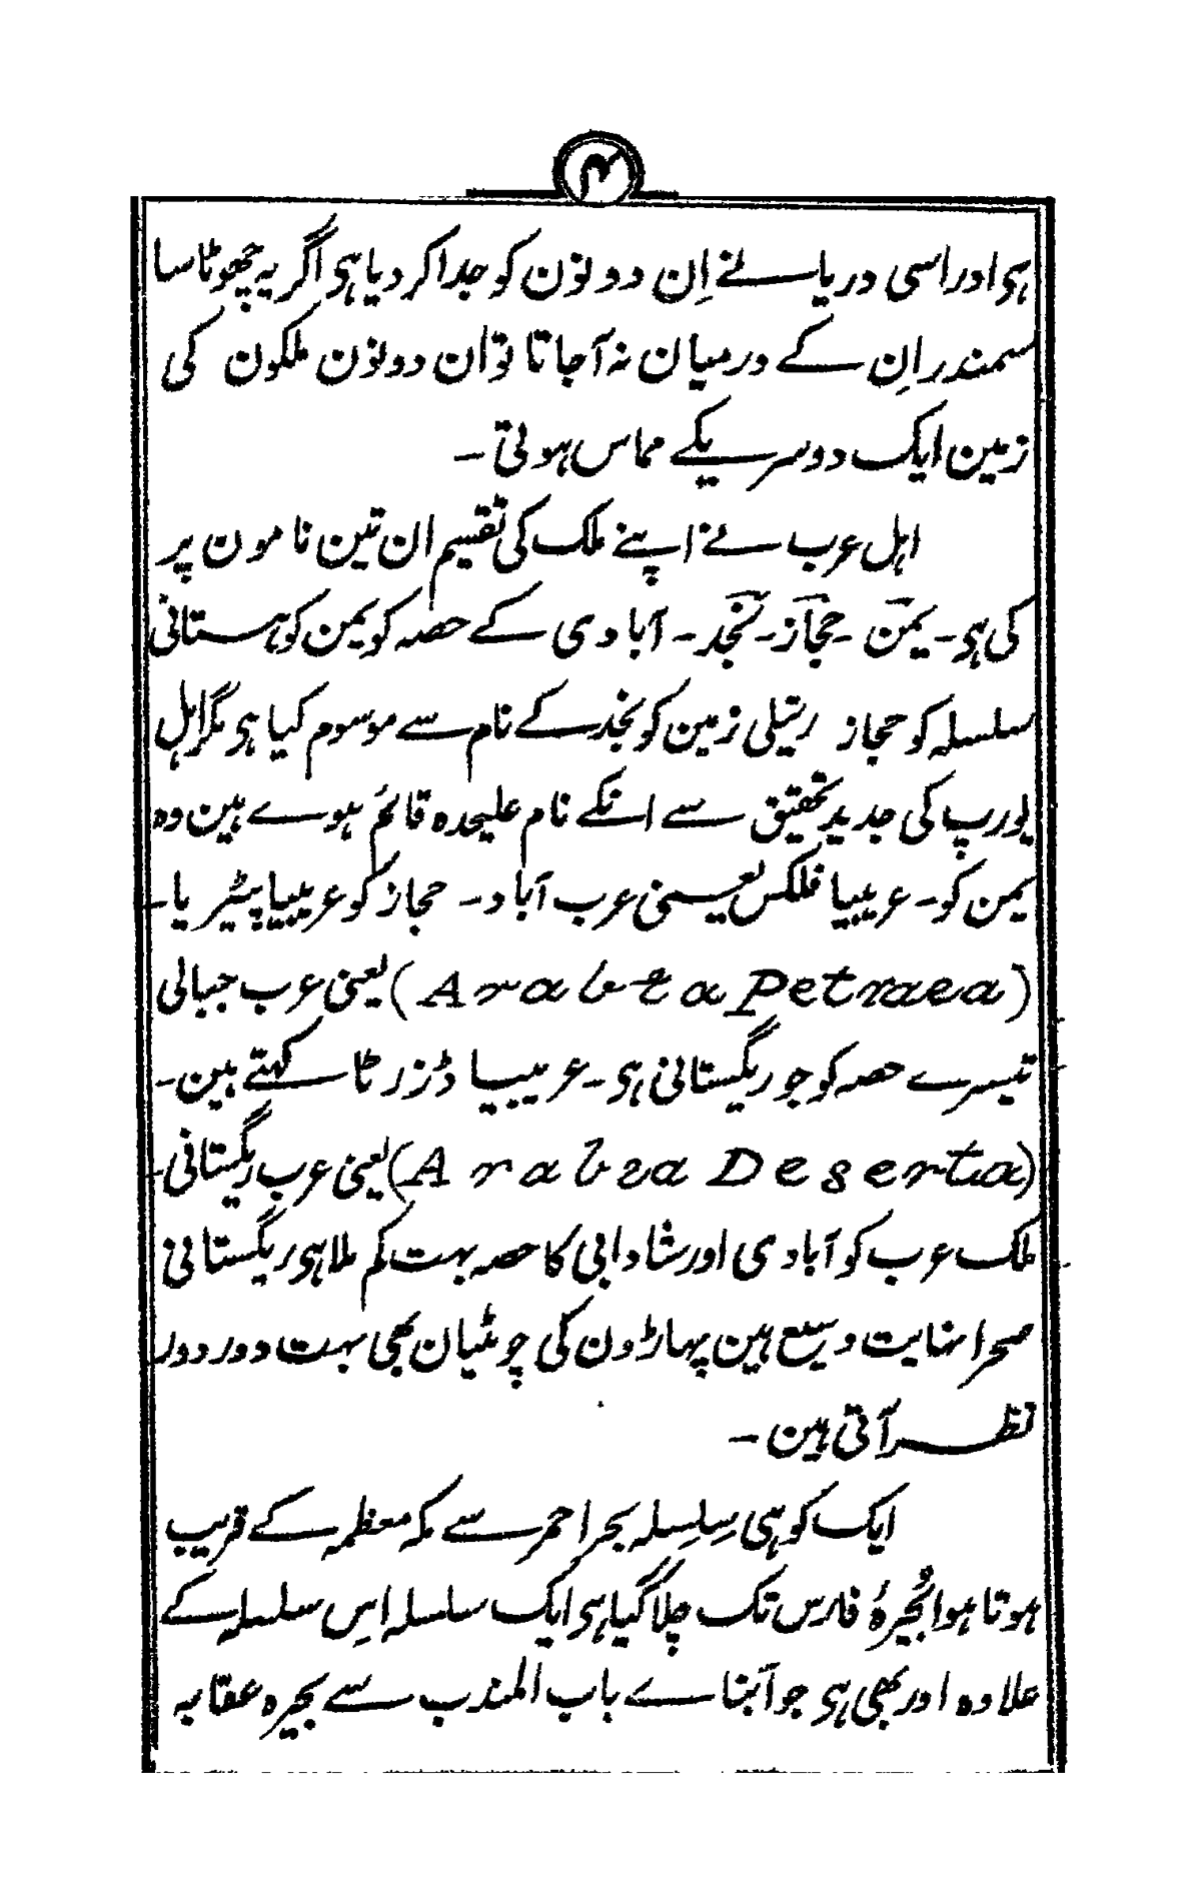 ۴
ہی اور اسی دریا نے اِن دونون کو جدا کر دیا ہی اگر یہ چھوٹا سا
سمندر اِن کے درمیان نہ آجاتا تو ان دونون ملکون کی
زمین ایک دوسریکے مماس ہوتی ۔
اہل عرب نے اپنے ملک کی تقسیم ان تین نامون پر
کی ہی ۔ یمن ۔ حجاز ۔ نجد ۔ آبادی کے حصہ کو یمن کوہستانی
سلسلہ کو حجاز ریتلی زمین کو نجد کے نام سے موسوم کیا ہی مگر اہل
یورپ کی جدید تحقیق سے انکے نام علیحدہ قائم ہوے ہین وہ
یمن کو ۔ عریبیا فلکس یعنی عرب آباد ۔ حجاز کو عریبیا پیٹیریا ۔
(Arabia Petraea) یعنی عرب جبالی
تیسرے حصہ کو جو ریگستانی ہی ۔ عریبیا ڈزرٹا کہتے ہین ۔
(Arabia Deserta) یعنی عرب ریگستانی ۔
ملک عرب کو آبادی اور شادابی کا حصہ بہت کم ملا ہی ریگستانی
صحرا نہایت وسیع ہین پہاڑون کی چوٹیان بھی بہت دور دور
نظر آتی ہین ۔
ایک کوہی سِلسِلہ بحر احمر سے مکہ معظمہ کے قریب
ہوتا ہوا بُحیرۂ فارس تک چلا گیا ہی ایک سلسلہ اِس سلسلہ کے
علاوہ اور بھی ہی جو آبناے باب المندب سے بحیرہ عقابہ